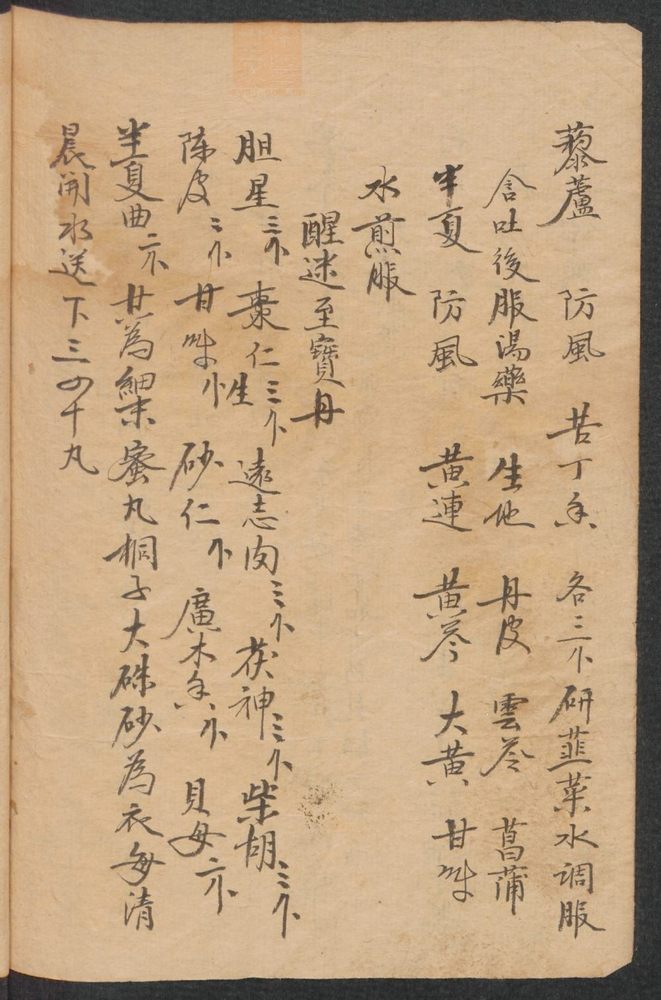 藜蘆 防風 苦丁香 各三个研韮菜水调服
含吐後服湯藥 生地 丹皮 雲苓 菖蒲
半夏 防風 黄連 黄芩 大黄 甘艸
水煎服
醒迷至寳丹
胆星三个 棗仁三个生 遠志肉三个 茯神三个 柴胡三个
陈皮三个 甘艸个 砂仁个 廣木香个 貝母二个
半夏曲二个 共為細末蜜丸桐子大硃砂為衣每清
晨開水送下三四十丸